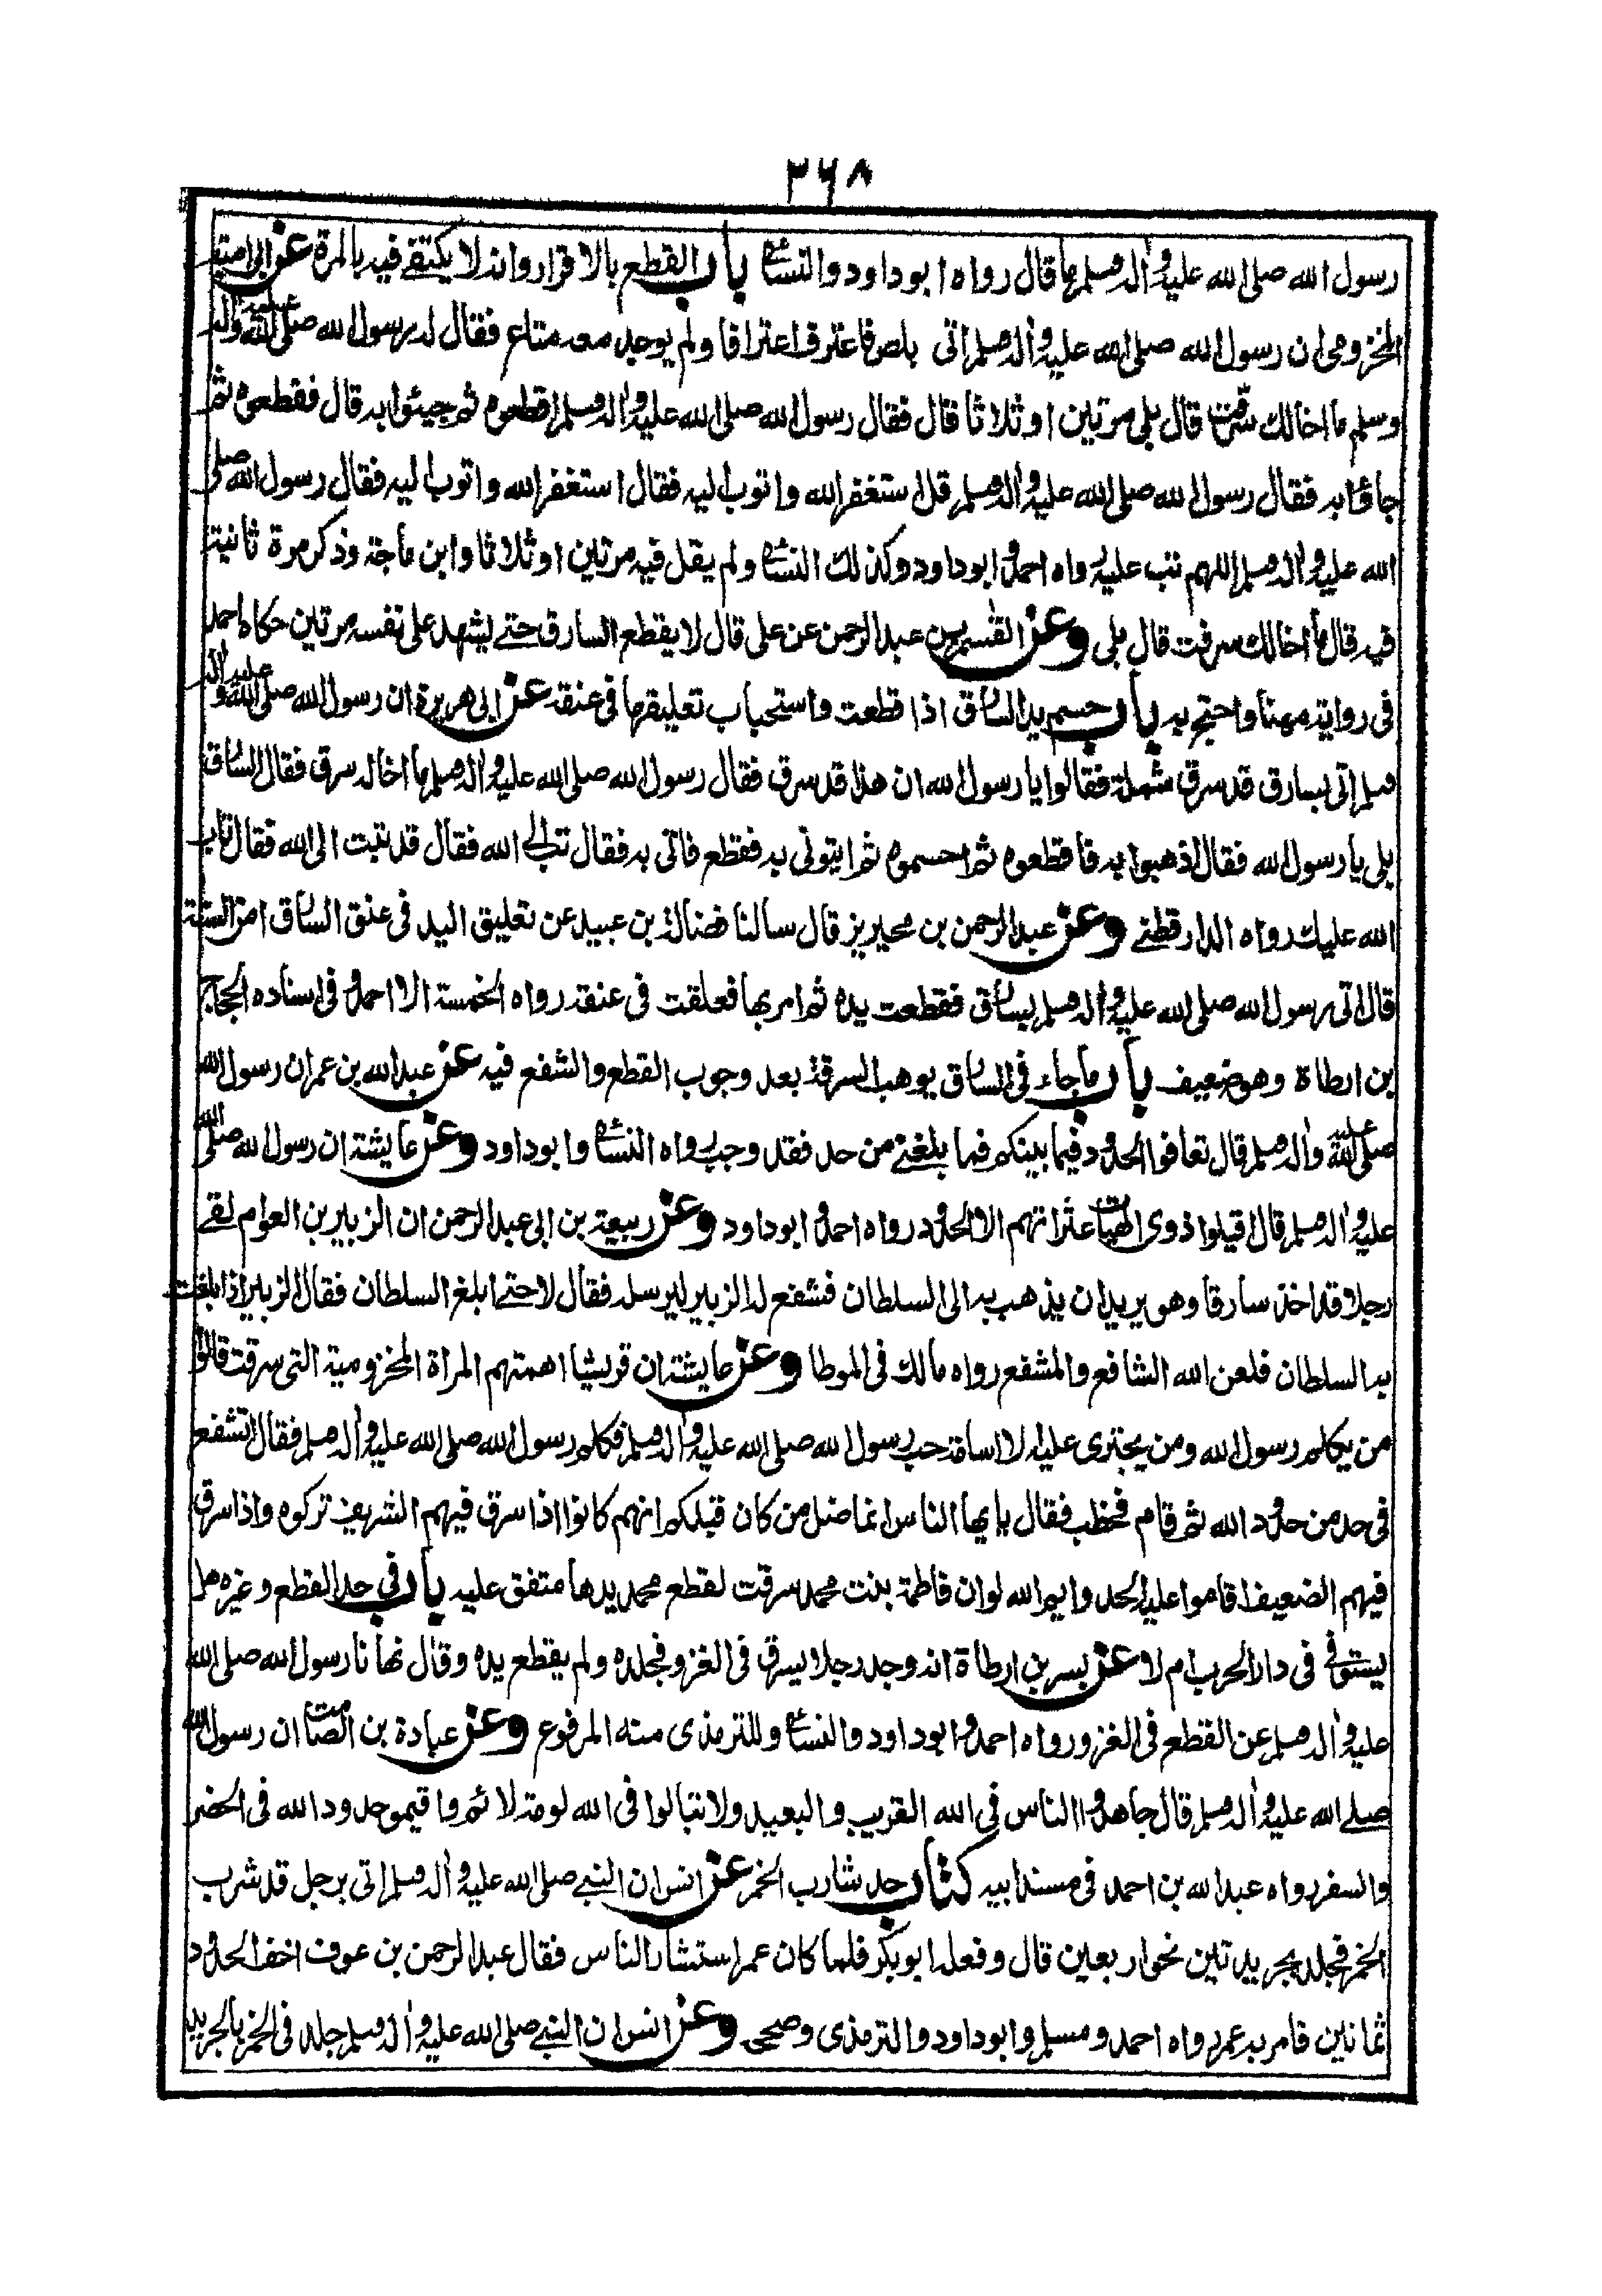 ٣٦٨
رسول الله صلى الله عليه واله وسلم بما قال رواه ابو داود والنسائى باب القطع بالاقرار وانه لا يكتفى فيه بالمرة عن ابى امية
المخزومى ان رسول الله صلى الله عليه واله وسلم اتى بلص فاعترف اعترافا ولم يوجد معه متاع فقال له رسول الله صلى الله عليه واله
وسلم ما اخالك سرقت قال بلى مرتين او ثلاثا قال فقال رسول الله صلى الله عليه واله وسلم اقطعوه ثم جيئوا به قال فقطعوه ثم
جاؤا به فقال رسول الله صلى الله عليه واله وسلم قل استغفر الله واتوب اليه فقال استغفر الله واتوب اليه فقال رسول الله صلى
الله عليه واله وسلم اللهم تب عليه رواه احمد وابو داود وكذلك النسائى ولم يقل فيه مرتين او ثلاثا وابن ماجة وذكر مرة ثانية
فيه قال ما اخالك سرقت قال بلى وعن القسم بن عبد الرحمن عن على قال لا يقطع السارق حتى يشهد على نفسه مرتين حكاه احمد
فى رواية مهنا واحتج به باب حسم يد السارق اذا قطعت واستحباب تعليقها فى عنقه عن ابى هريرة ان رسول الله صلى الله عليه واله و
سلم اتى بسارق قد سرق شملة فقالوا يا رسول الله ان هذا قد سرق فقال رسول الله صلى الله عليه واله وسلم ما اخاله سرق فقال السارق
بلى يا رسول الله فقال اذهبوا به فاقطعوه ثم احسموه ثم ايتونى به فقطع فاتى به فقال تب الى الله فقال قد تبت الى الله فقال تاب
الله عليك رواه الدارقطنى وعن عبد الرحمن بن محيريز قال سالنا فضالة بن عبيد عن تعليق اليد فى عنق السارق امن السنة
قال اتى رسول الله صلى الله عليه واله وسلم بسارق فقطعت يده ثم امر بها فعلقت فى عنقه رواه الخمسة الا احمد وفى اسناده الحجاج
بن ارطاة وهو ضعيف باب ما جاء فى السارق يوهب السرقة بعد وجوب القطع والشفع فيه عن عبد الله بن عمر ان رسول الله
صلى الله عليه واله وسلم قال تعافوا الحدود فيما بينكم فما بلغنى من حد فقد وجب رواه النسائى وابو داود وعن عايشة ان رسول الله صلى الله
عليه واله وسلم قال اقيلوا ذوى الهيات عثراتهم الا الحدود رواه احمد وابو داود وعن ربيعة بن ابى عبد الرحمن ان الزبير بن العوام لقى
رجلا قد اخذ سارقا وهو يريد ان يذهب به الى السلطان فشفع له الزبير ليرسله فقال لا حتى ابلغ السلطان فقال الزبير اذا بلغت
به السلطان فلعن الله الشافع والمشفع رواه مالك فى الموطا وعن عايشة ان قريشا اهمتهم المراة المخزومية التى سرقت قالوا
من يكلم رسول الله ومن يجترى عليه الا اسامة حب رسول الله صلى الله عليه واله وسلم فكلم رسول الله صلى الله عليه واله وسلم فقال اتشفع
فى حد من حدود الله ثم قام فخطب فقال يا يها الناس انما ضل من كان قبلكم انهم كانوا اذا سرق فيهم الشريف تركوه واذا سرق
فيهم الضعيف اقاموا عليه الحد وايم الله لو ان فاطمة بنت محمد سرقت لقطع محمد يدها متفق عليه باب فى حد القطع وغيره هل
يستوفى فى دار الحرب ام لا عن بسر بن ارطاة انه وجد رجلا يسرق فى الغزو فجلده ولم يقطع يده وقال نهانا رسول الله صلى الله
عليه واله وسلم عن القطع فى الغزو رواه احمد وابو داود والنسائى وللترمذى منه المرفوع وعن عبادة بن الصامت ان رسول الله
صلى الله عليه واله وسلم قال جاهدوا الناس فى الله القريب والبعيد ولا تبالوا فى الله لومة لائم واقيموا حدود الله فى الحضر
والسفر رواه عبد الله بن احمد فى مسند ابيه كتاب حد شارب الخمر عن انس ان النبى صلى الله عليه واله وسلم اتى برجل قد شرب
الخمر فجلد بجريدتين نحو اربعين قال وفعله ابو بكر فلما كان عمر استشار الناس فقال عبد الرحمن بن عوف اخف الحدود
ثمانين فامر به عمر رواه احمد ومسلم وابو داود والترمذى وصححه وعن انس ان النبى صلى الله عليه واله وسلم جلد فى الخمر بالجريد